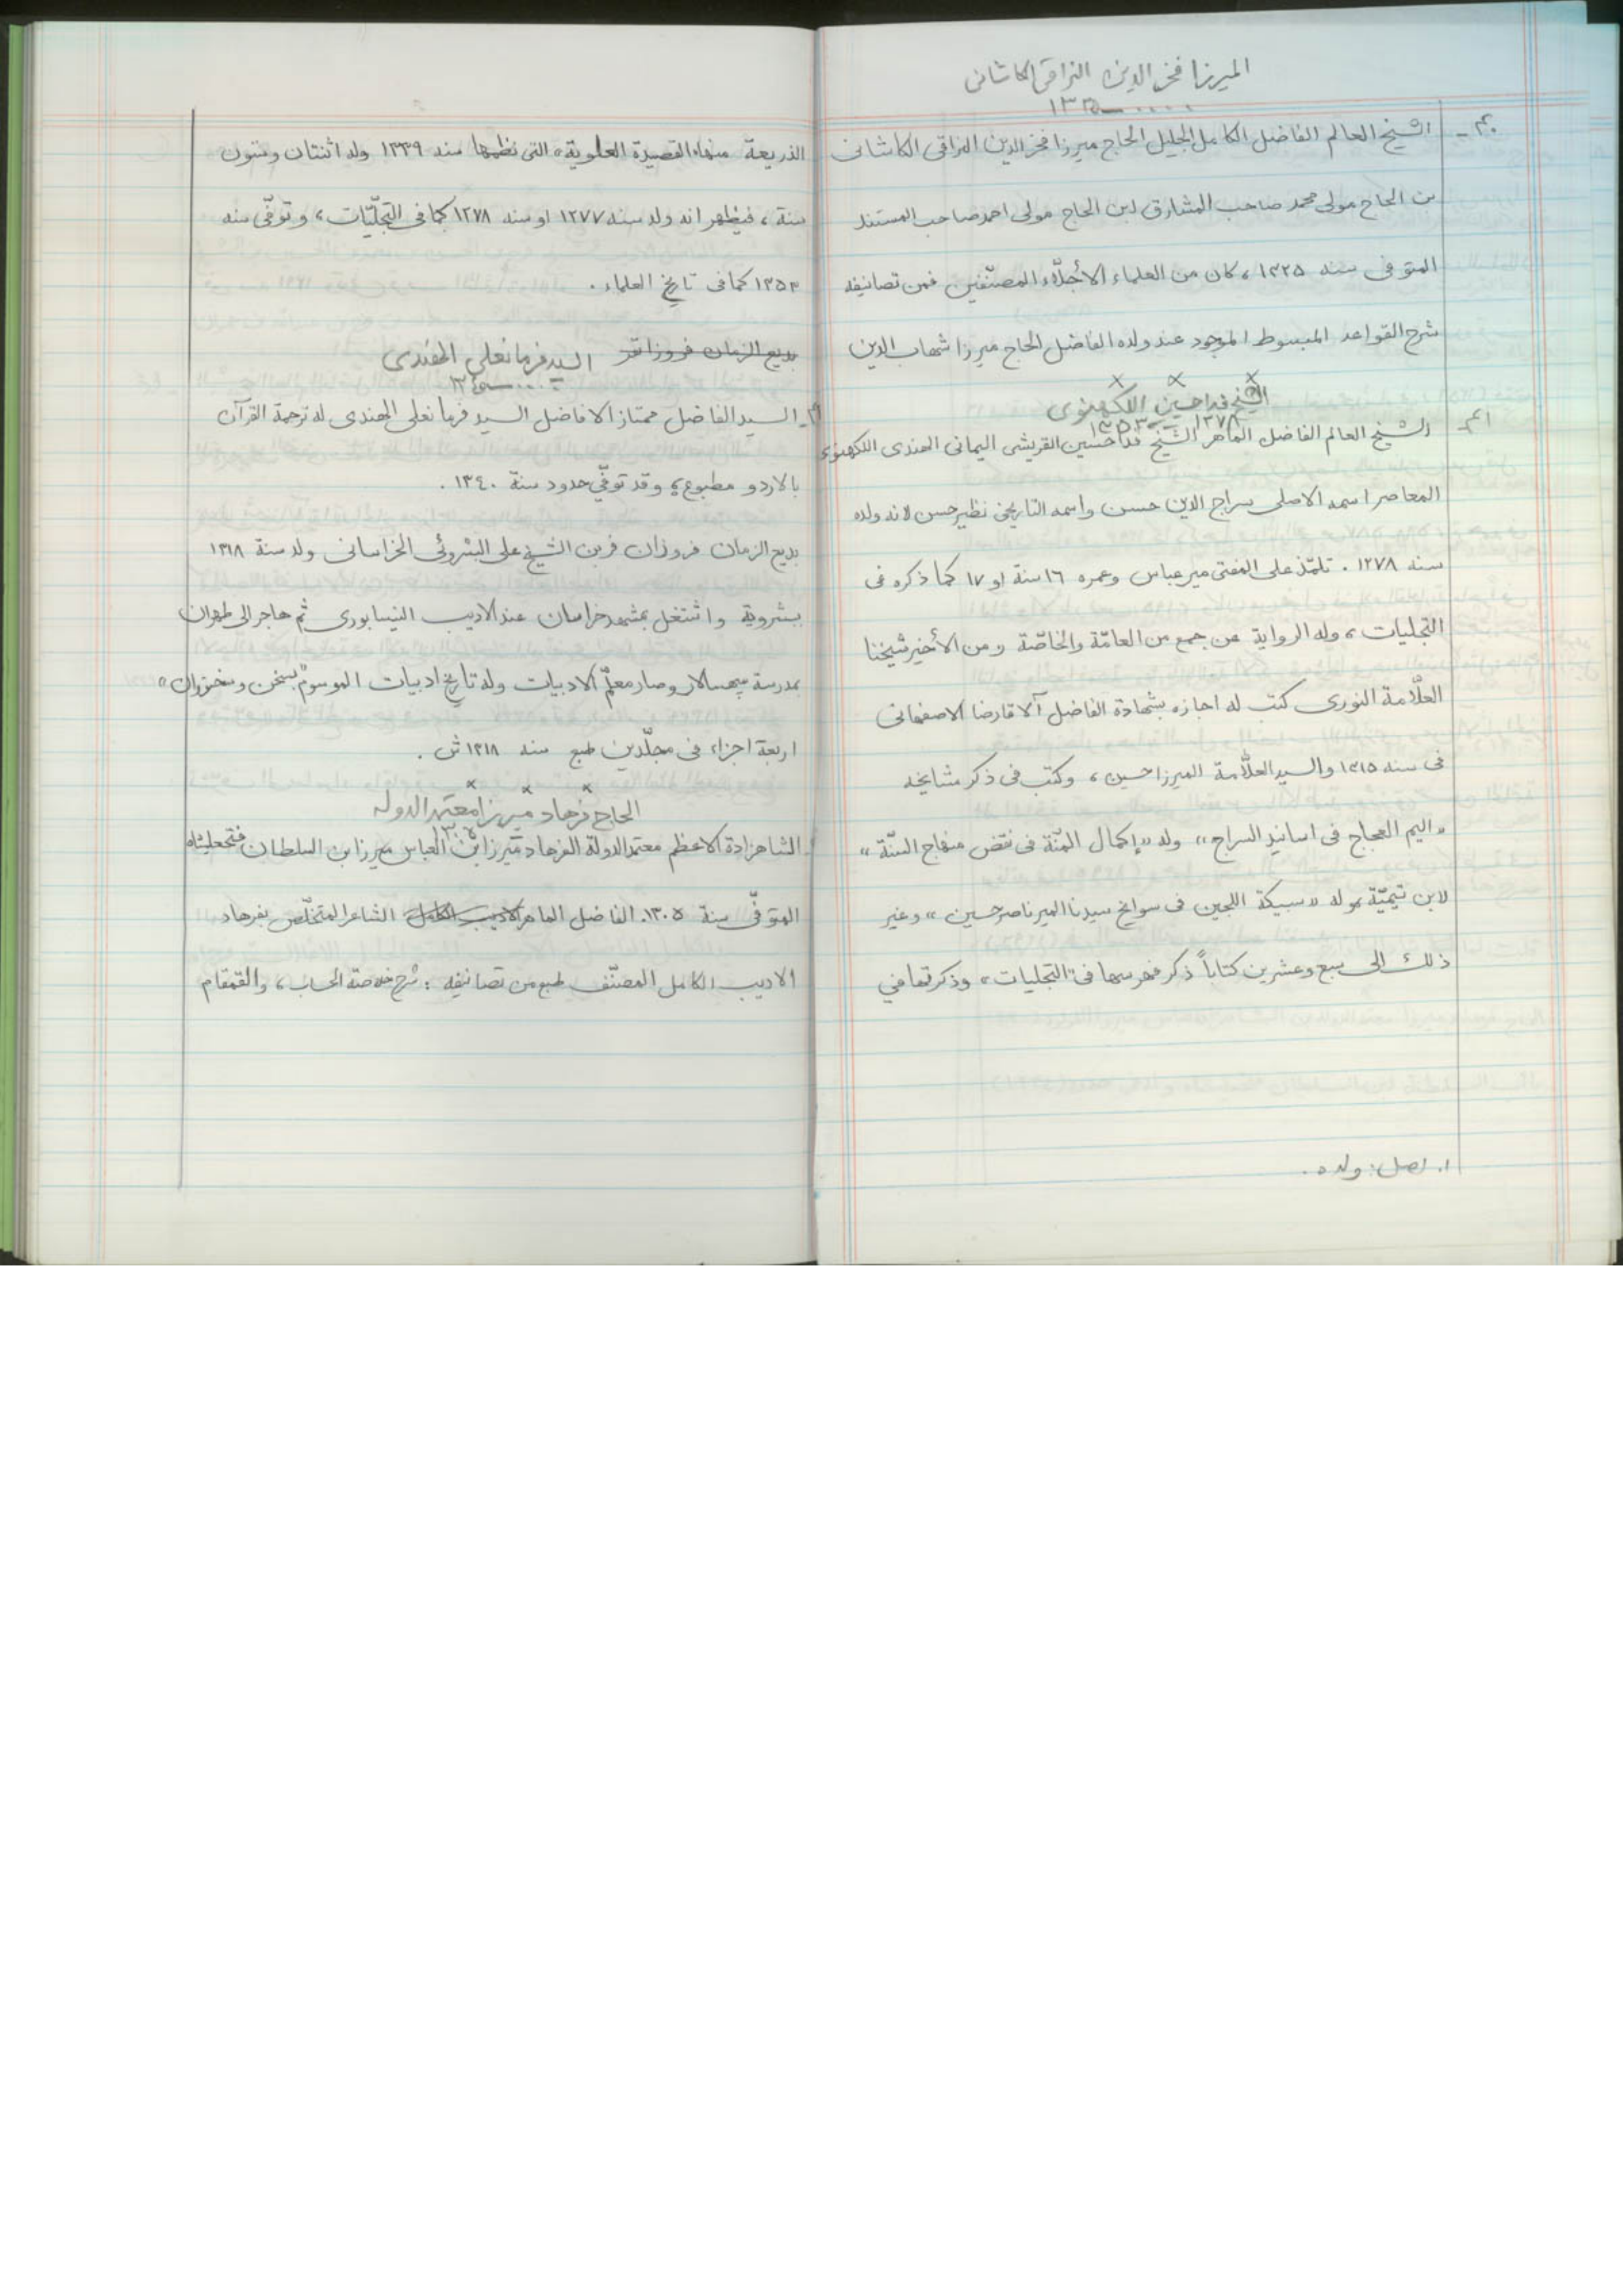 الميرزا فخر الدين النراقى الكاشانى
.... ـ ١٣٢٥
٤٠ـ الشيخ العالم الفاضل الكامل الجليل الحاج ميرزا فخر الدين النراقى الكاشانى
بن الحاج مولى محمد صاحب المشارق ابن الحاج مولى احمد صاحب المستند
المتوفى سنه ١٣٢٥ ، كان من العلماء الأجلّاء المصنّفين فمن تصانيفه
شرح القواعد المبسوط الموجود عند ولده الفاضل الحاج ميرزا شهاب الدين
الشيخ فداحسين اللكهنوى
١٢٧٨ ـ ١٣٥٣
٤١ـ الشيخ العالم الفاضل الماهر الشيخ فداحسين القريشى اليمانى الهندى اللكهنوى
المعاصر اسمه الاصلى سراج الدين حسن واسمه التاريخى نظير حسن لانه ولده
سنه ١٢٧٨ . تلمّذ على المفتى مير عباس وعمره ١٦ سنة او ١٧ كما ذكره فى
التجليات ، وله الرواية عن جمع من العامّة والخاصّة ومن الأخير شيخنا
العلّامة النورى كتب له اجازه بشهادة الفاضل آلاقارضا الاصفهانى
فى سنه ١٣١٥ والسيد العلّامة الميرزا حسين ، وكتب فى ذكر مشايخه
«اليم العجاج فى اسانيد السراج» وله «إكمال المنّة فى نقض منهاج السنّة»
لابن تيميّة وله «سبيكة اللجين فى سوانح سيدنا المير ناصر حسين» وغير
ذلك الى سبع وعشرين كتاباً ذكر فهرسها فى «التجليات» وذكرتها في
١. اصل: ولده .
الذريعة منها «القصيدة العلوية» التى نظمها سنه ١٣٣٩ وله اثنتان وستون
سنة ، فيظهر انه ولد سنه ١٢٧٧ او سنه ١٢٧٨ كما فى التجلّيّات ، و توفّى سنه
١٣٥٣ كما فى تاريخ العلماء .
بديع الزمان فروزانفر السيد فرمانعلى الهندى
.... ـ ١٣٤٠
السيد الفاضل ممتاز الافاضل السيد فرمانعلى الهندى له ترجمة القرآن
بالاردو مطبوع ، وقد توفّي حدود سنة ١٣٤٠ .
بديع الزمان فروزان فر بن الشيخ على البشروئى الخراسانى ولد سنة ١٣١٨
ببشروية واشتغل بمشهد خراسان عند الاديب النيسابورى ثم هاجر الى طهران
بمدرسة سپهسالار وصار معلّم الادبيات وله تاريخ ادبيات الموسوم «بسخن وسخنوران»
اربعة اجزاء فى مجلّدين طبع سنه ١٣١٨ ش .
الحاج فرهاد ميرزا معتمد الدوله
١٣٠٥
الشاهزادة الاعظم معتمد الدولة الفرهاد ميرزا بن العباس ميرزا بن السلطان فتحعليشاه
المتوفّى سنة ١٣٠٥. الفاضل الماهر الاديب الكامل الشاعر المتخلّص بفرهاد
الاديب الكامل المصنّف طبع من تصانيفه : شرح خلاصة الحساب ، والقمقام